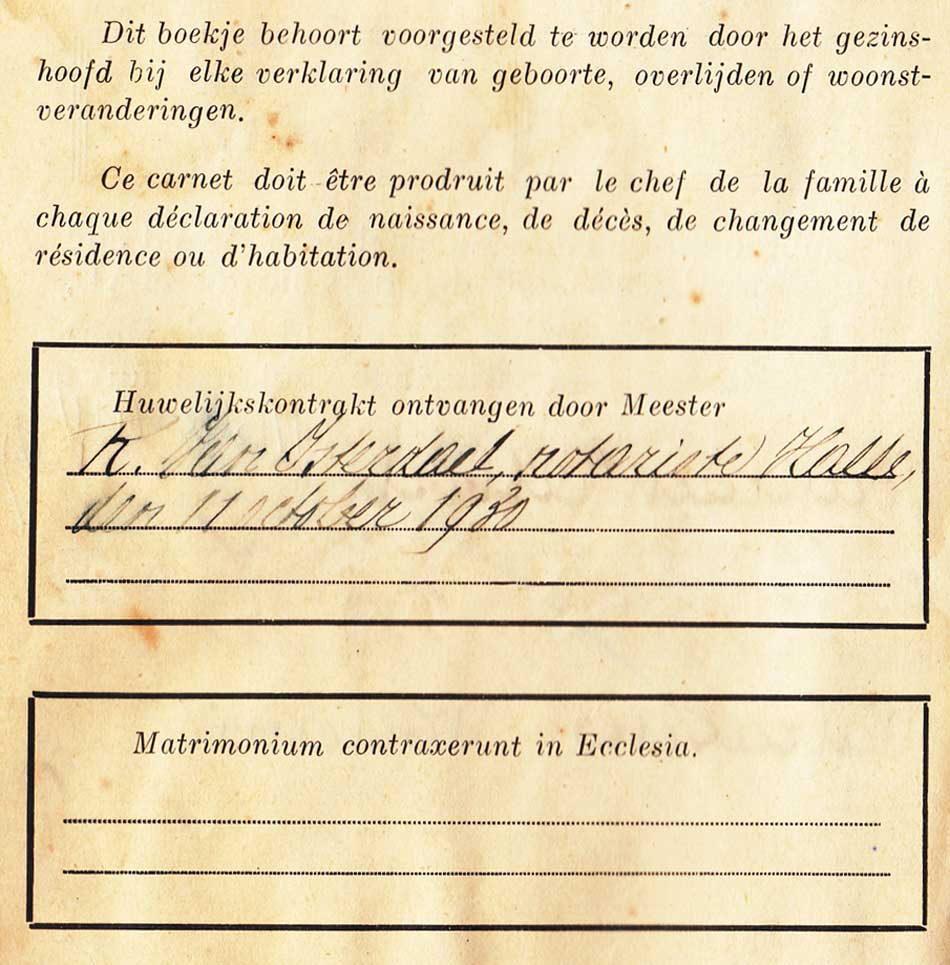 Dit boekje behoort voorgesteld te worden door het gezins-
hoofd bij elke verklaring van geboorte, overlijden of woonst-
veranderingen.
Ce carnet doit être prodruit par le chef de la famille à
chaque déclaration de naissance, de décès, de changement de
résidence ou d'habitation.
Huwelijkskontrakt ontvangen door Meester
Van Isterdael, notaris te Halle,
den 11 october 1930
Matrimonium contraxerunt in Ecclesia.